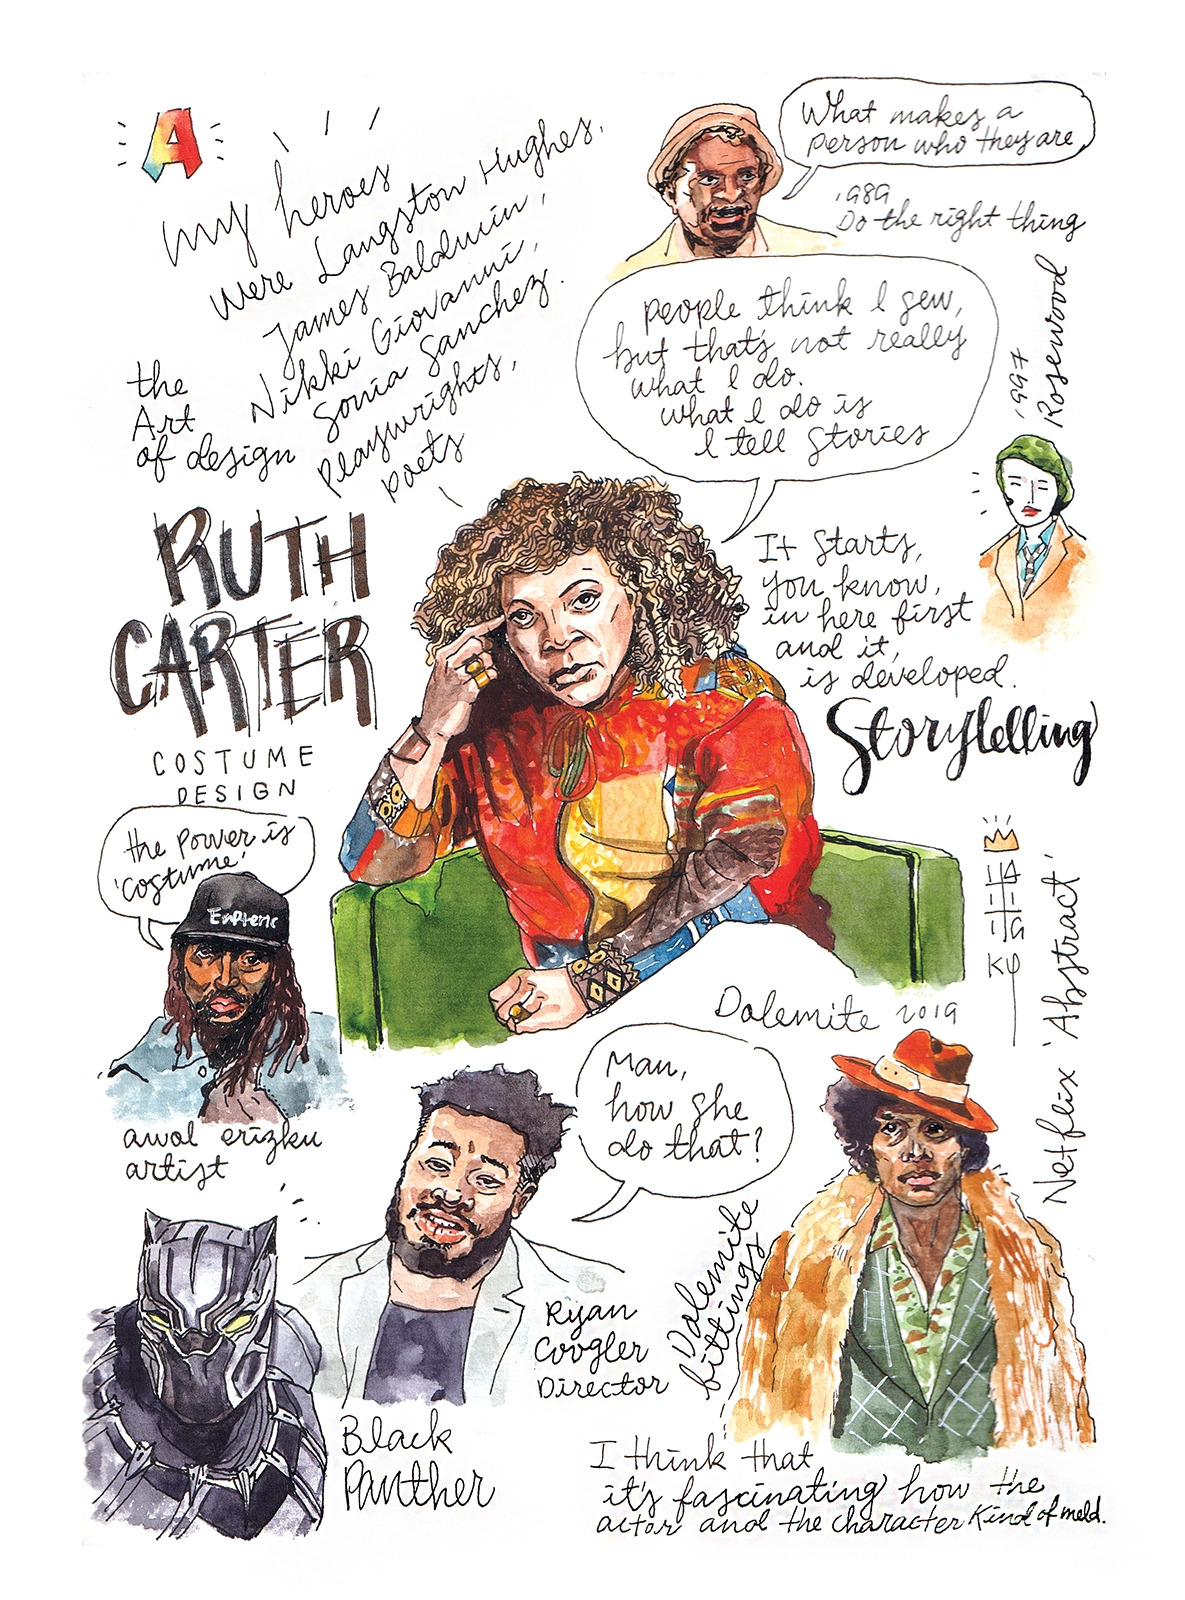 A
my heroes
were Langston Hughes,
James Baldwin,
Nikki Giovanni,
Sonia Sanchez.
Playwrights,
poets
the
Art
of design
RUTH
CARTER
COSTUME
DESIGN
What makes a
person who they are
1989
Do the right thing
people think I sew,
but that's not really
what I do.
what I do is
I tell stories
1997
Rosewood
It starts,
you know,
in here first
and it,
is developed.
Storytelling
the power is
'costume'
Esoteric
awol erizku
artist
Netflix 'Abstract'
Dolemite 2019
Man,
how she
do that?
Ryan
Coogler
Director
Black
Panther
Dolemite
fittings
I think that
it's fascinating how the
actor and the character kind of meld.